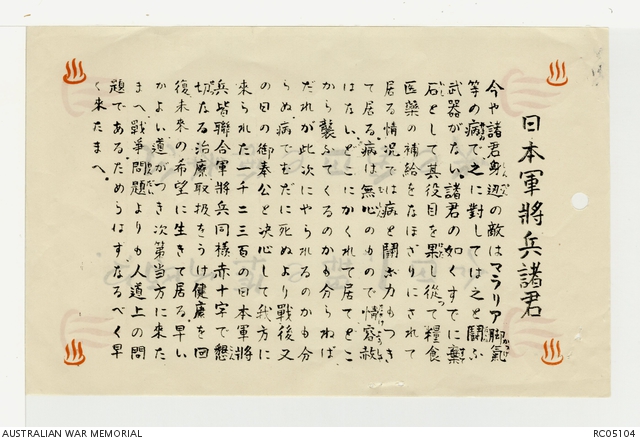 日本軍將兵諸君
今や諸君身辺の敵はマラリア脚氣
等の病で之に對しては之と鬪ふ
武器がない。諸君の如くすでに棄
石として其役目を果し從って糧食
医藥の補給をなほざりにされて
居る情況では病と鬪ふ力もつき
て居る。病は無心のもので情容赦
はないどこにかくれて居てどこ
から襲ふてくるのかも分らねば
だれが此次にやられるのかも分
らぬ病でむだに死ぬより戰後又
の日の御奉公と決心して我方に
来られた一千二三百の日本軍將
兵皆聯合軍將兵同様赤十字で懇
切なる治療取扱をうけ健康を回
復未来の希望に生きて居る。早い
かよい道がつき次第当方に来た
まへ戰爭問題よりも人道上の問
題であるためらはずなるべく早
く来たまへ。
AUSTRALIAN WAR MEMORIAL
RC05104